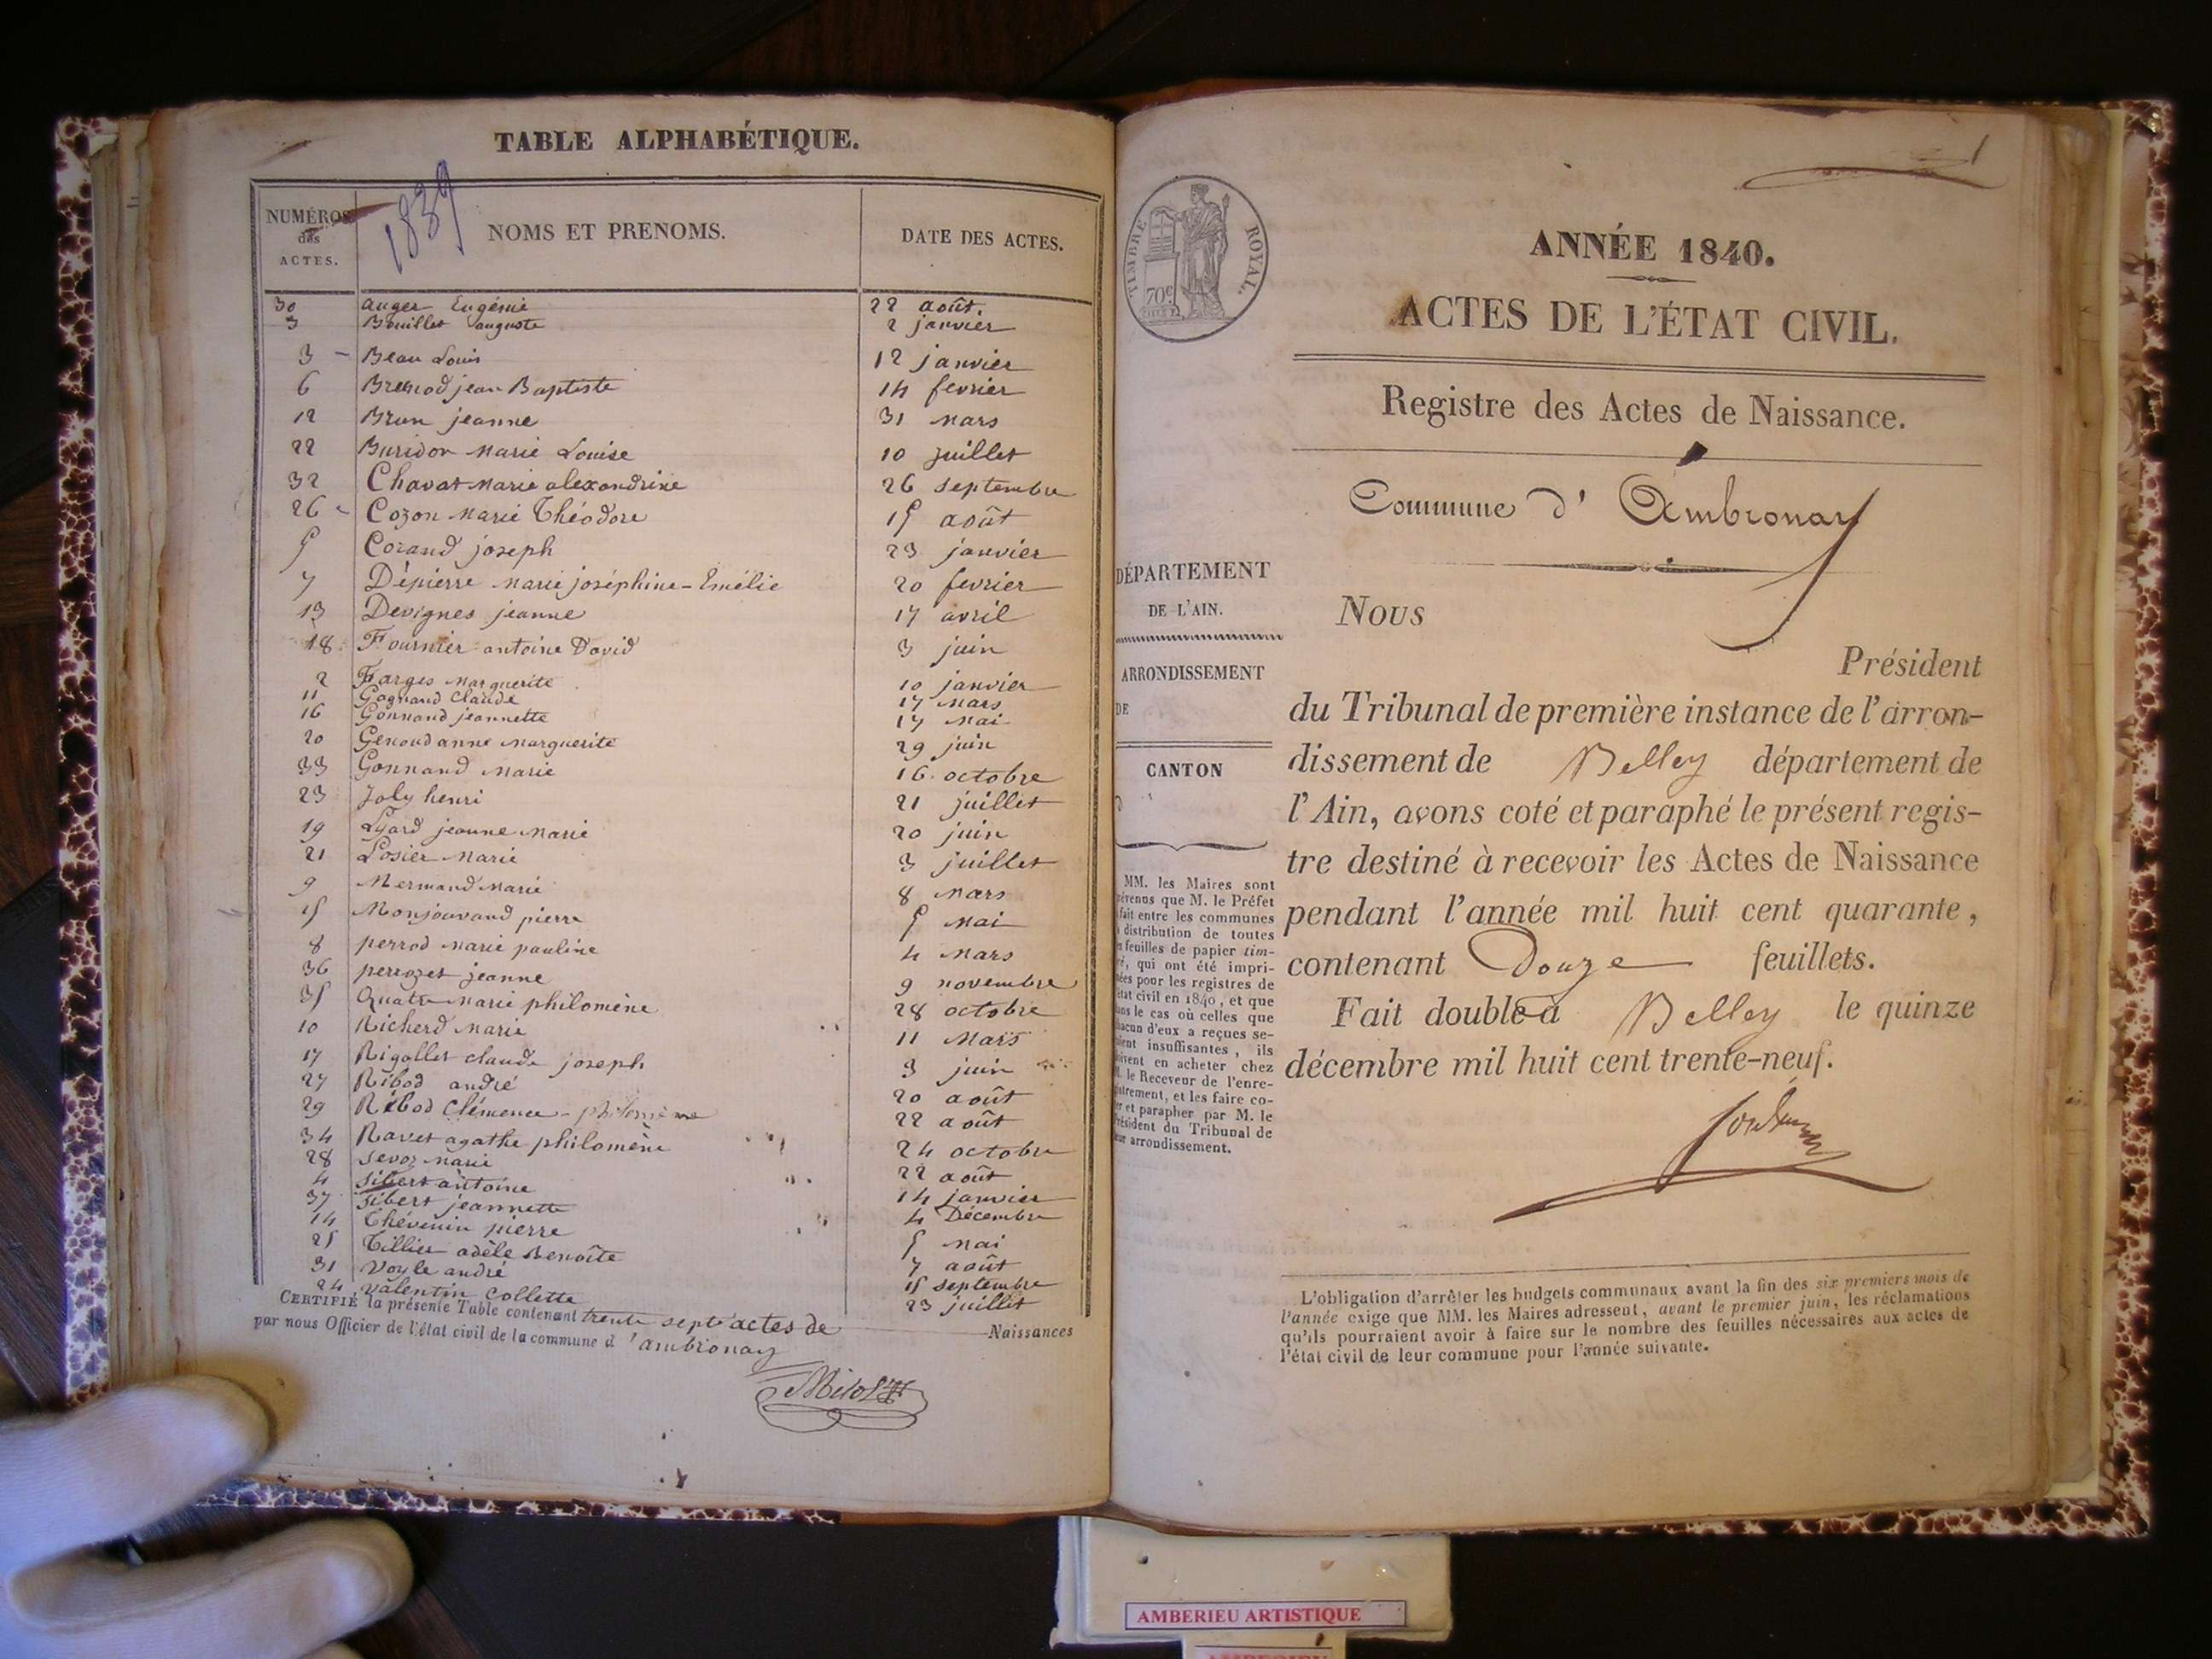 TABLE ALPHABÉTIQUE.
1839
NUMÉROS des ACTES. NOMS ET PRENOMS. DATE DES ACTES.
30 auger Eugénie 22 août.
3 Bouillet auguste 2 janvier
3 - Beau Louis 12 janvier
6 Bresnod jean Baptiste 14 fevrier
12 Brun jeanne 31 mars
22 Buridon Marie Louise 10 juillet
32 Chavat marie alexandrine 26 septembre
26 - Cozon Marie Théodore 15 août
5 Corand joseph 23 janvier
7 Dépierre Marie joséphine-Emélie 20 fevrier
13 Devignes jeanne 17 avril
18 Fournier antoine David 3 juin
2 Farges Marguerite 10 janvier
11 Gagnand Claude 17 mars
16 Gonnand jeannette 17 mai
20 Genoud anne Marguerite 29 juin
33 Gonnand Marie 16 octobre
23 Joly henri 21 juillet
19 Lyard jeanne Marie 20 juin
21 Losier Marie 3 juillet
9 Mermand Marie 8 mars
15 Monjouvand pierre 5 mai
8 perrod marie pauline 4 mars
36 perrozet jeanne 9 novembre
35 Quatre marie philomène 28 octobre
10 Richerd Marie 11 Mars
17 Rigollet claude joseph 3 juin
27 Ribod andré 20 août
29 Ribod Clémence - philomène 22 août
34 Ravet agathe philomène 24 octobre
28 Sevoz marie 22 août
4 Sibert antoine 14 janvier
37 Sibert jeannette 4 Décembre
14 Thévenin pierre 5 mai
25 Tillier adèle Benoîte 7 août
31 Voyle andré 15 septembre
24 Valentin Collette 23 juillet
CERTIFIÉ la présente Table contenant trente sept actes de Naissances
par nous Officier de l'état civil de la commune d'ambronay
1
TIMBRE ROYAL.
70c
ANNÉE 1840.
ACTES DE L'ÉTAT CIVIL.
Registre des Actes de Naissance.
Commune d' Ambronay
DÉPARTEMENT
DE L'AIN.
ARRONDISSEMENT
DE
CANTON
MM. les Maires sont
prévenus que M. le Préfet
fait entre les communes
la distribution de toutes
les feuilles de papier tim-
bré, qui ont été impri-
mées pour les registres de
l'état civil en 1840, et que
dans le cas où celles que
chacun d'eux a reçues se-
raient insuffisantes, ils
doivent en acheter chez
M. le Receveur de l'enre-
gistrement, et les faire co-
ter et parapher par M. le
Président du Tribunal de
leur arrondissement.
Nous
Président
du Tribunal de première instance de l'arron-
dissement de Belley département de
l'Ain, avons coté et paraphé le présent regis-
tre destiné à recevoir les Actes de Naissance
pendant l'année mil huit cent quarante,
contenant Douze feuillets.
Fait double à Belley le quinze
décembre mil huit cent trente-neuf.
L'obligation d'arrêter les budgets communaux avant la fin des six premiers mois de
l'année exige que MM. les Maires adressent, avant le premier juin, les réclamations
qu'ils pourraient avoir à faire sur le nombre des feuilles nécessaires aux actes de
l'état civil de leur commune pour l'année suivante.
AMBERIEU ARTISTIQUE